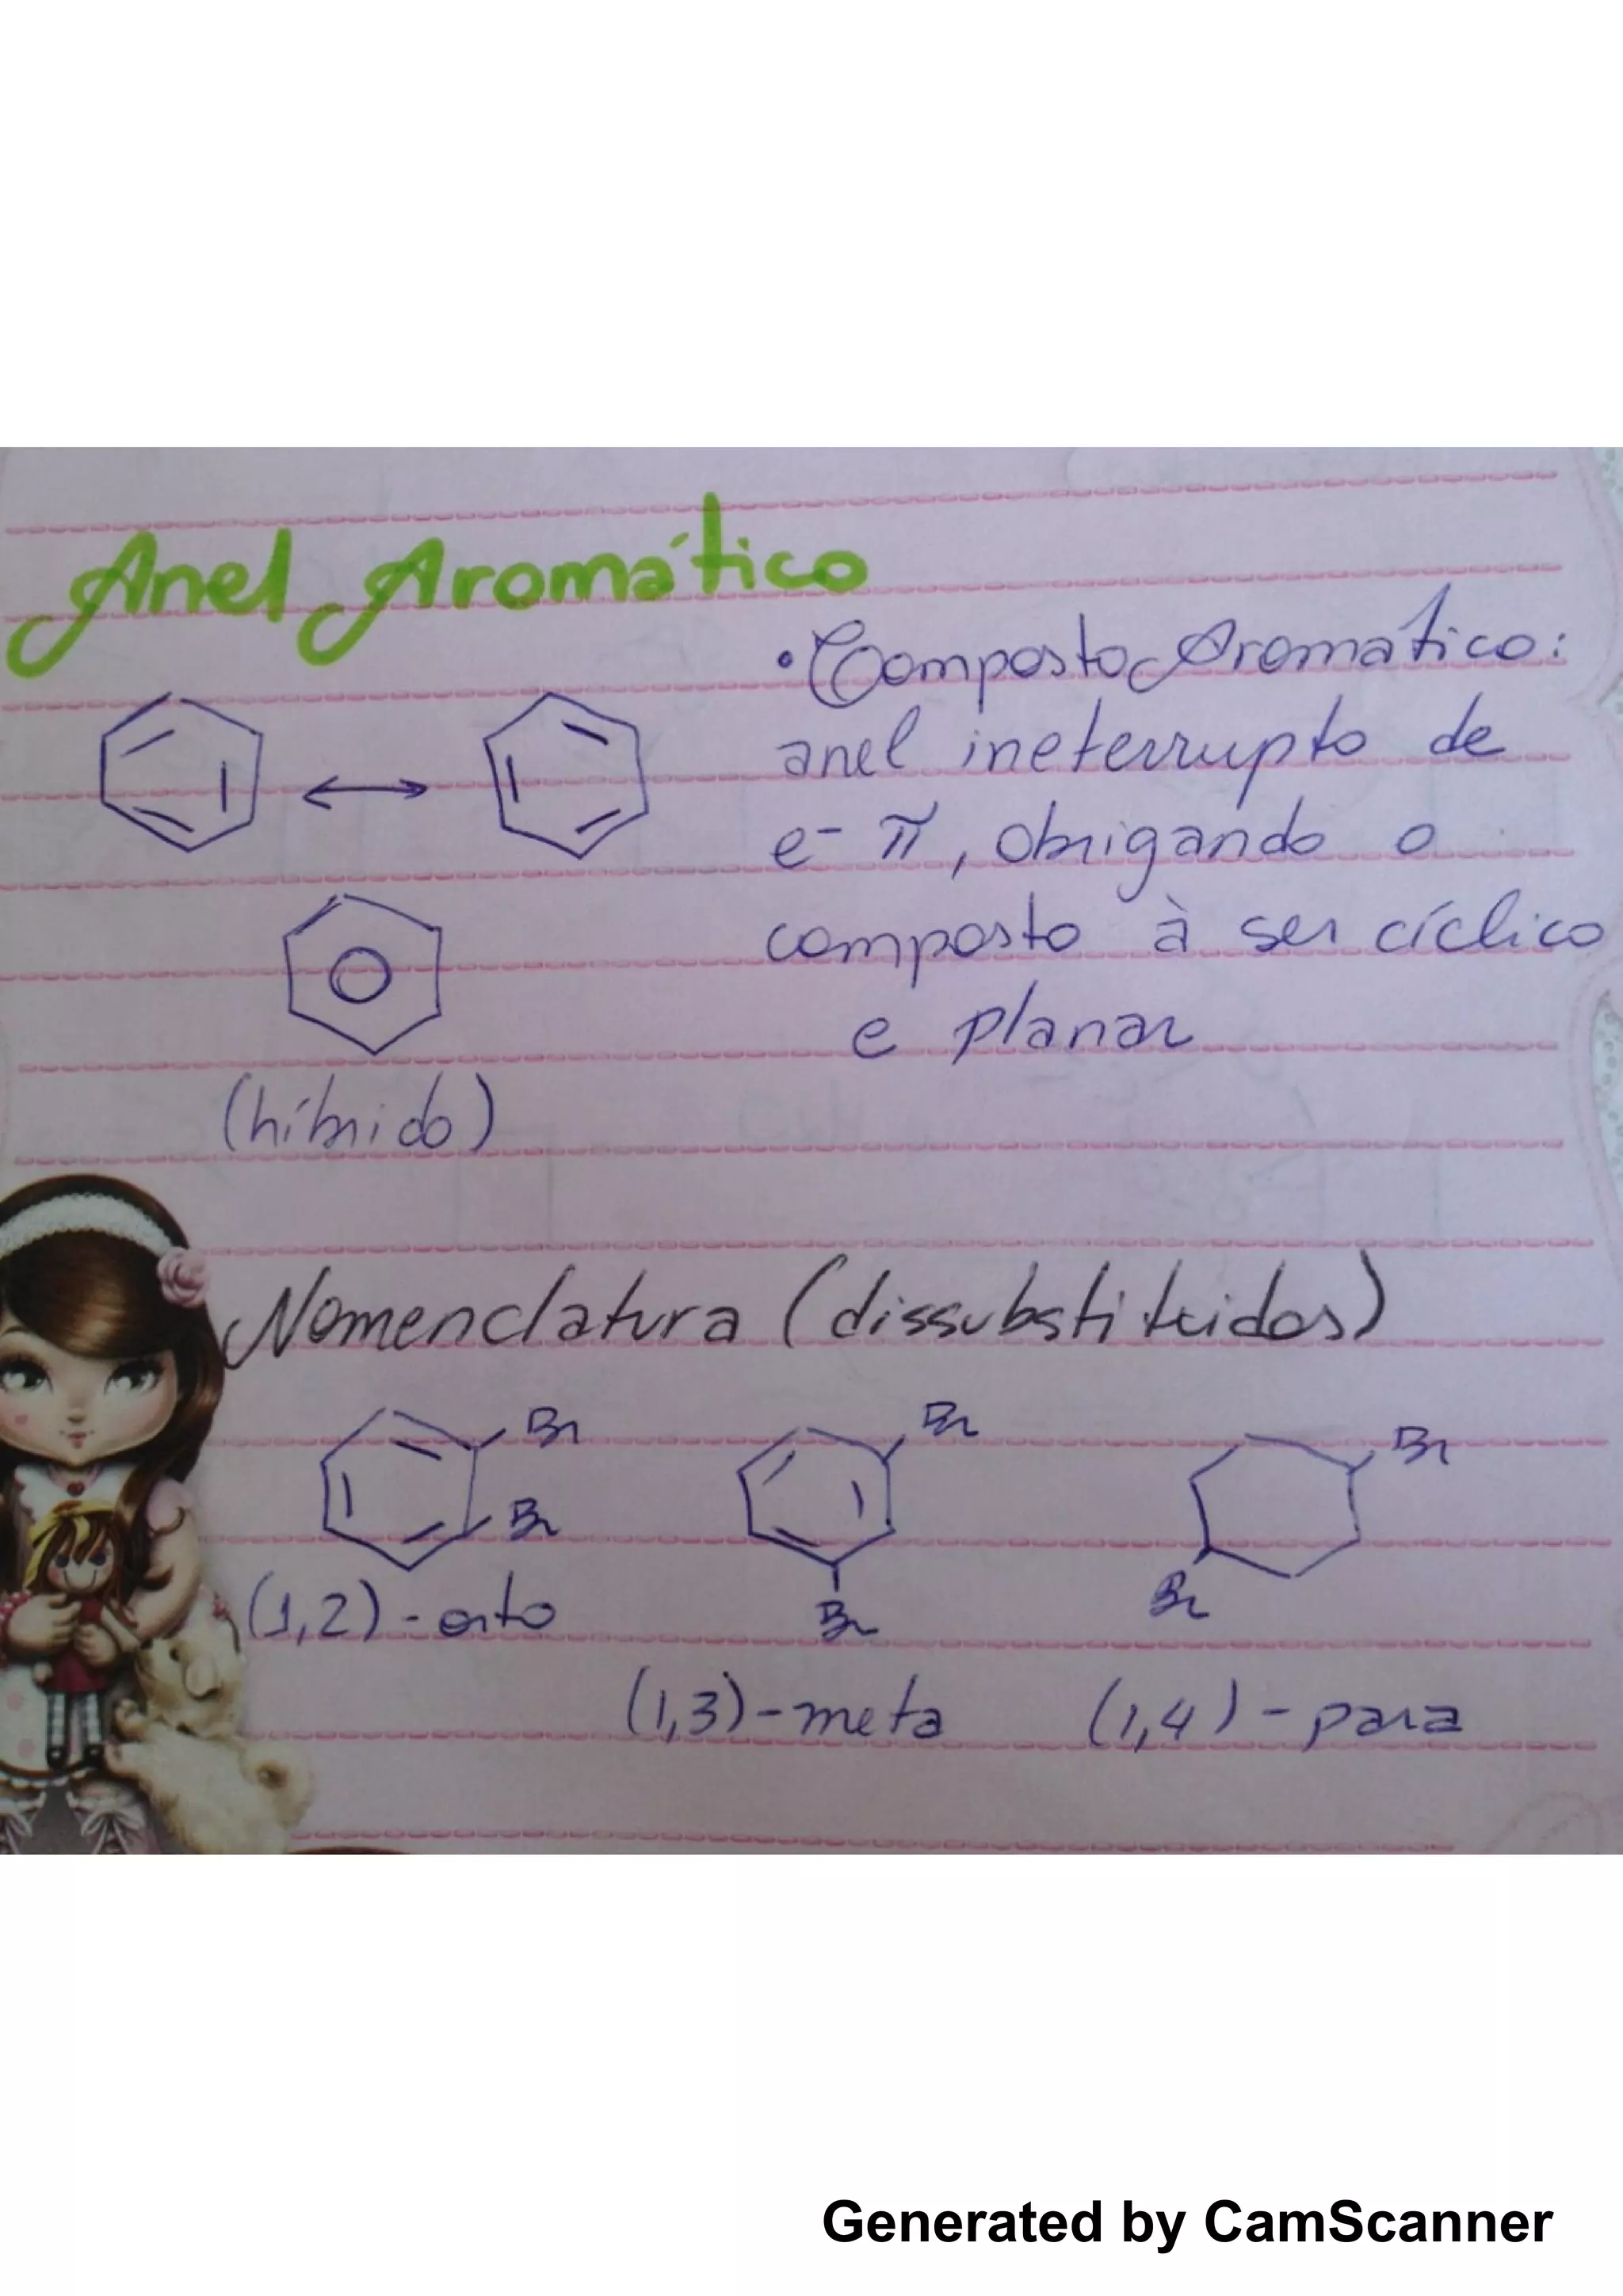 Anel Aromático
• Composto Aromático:
anel ineterrupto de
e- π, obrigando o
composto à ser cíclico
e planar
(híbrido)
Nomenclatura (dissubstituidos)
Br Br Br
Br
(1,2) - orto Br Br
(1,3) - meta (1,4) - para
Generated by CamScanner